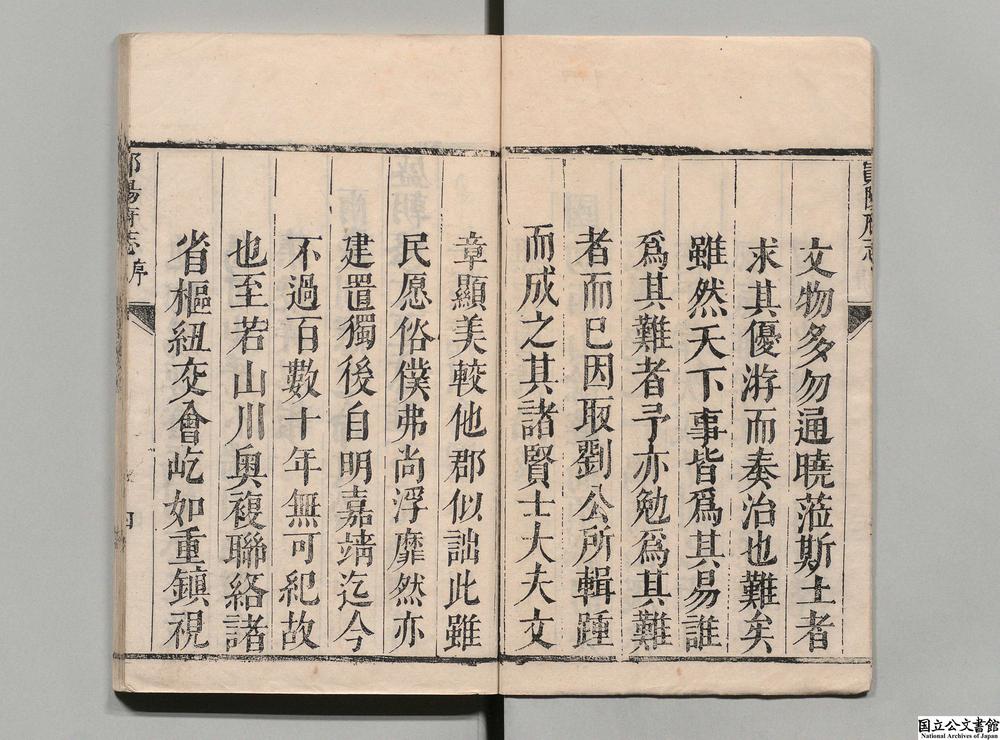 文物多勿通曉蒞斯土者
求其優游而奏治也難矣
雖然天下事皆爲其易誰
爲其難者予亦勉爲其難
者而已因取劉公所輯踵
而成之其諸賢士大夫文
章顯美較他郡似詘此雖
民愿俗僕弗尚浮靡然亦
建置獨後自明嘉靖迄今
不過百數十年無可紀故
也至若山川奥複聯絡諸
省樞紐交會屹如重鎮視
鄖陽府志 序
四
国立公文書館
National Archives of Japan